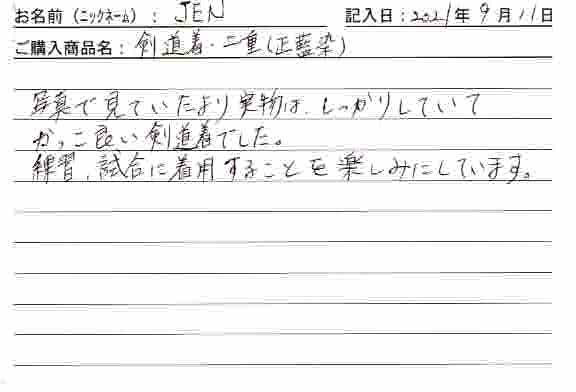 お名前(ニックネーム): JEN 記入日:2021年9月11日
ご購入商品名:剣道着・二重(正藍染)
写真で見ていたより実物は、しっかりしていて
かっこ良い剣道着でした。
練習、試合に着用することを楽しみにしています。